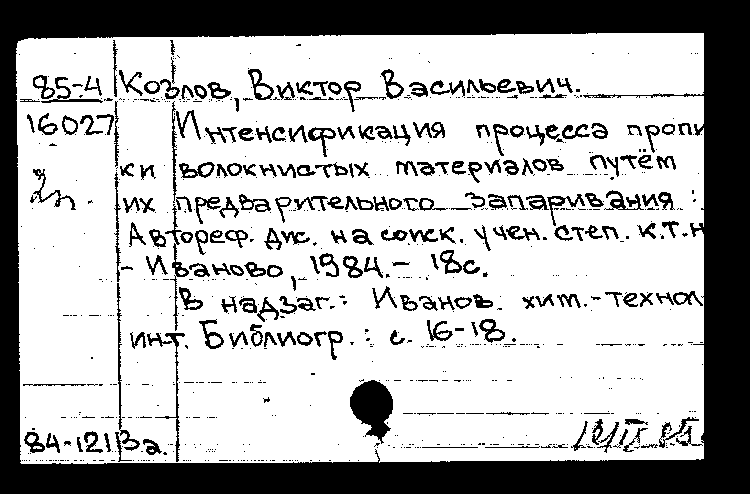 85-4 Козлов, Виктор Васильевич.
16027 Интенсификация процесса пропи
ки волокнистых материалов путём
2п. их предварительного запаривания :
Автореф. дис. на соиск. учен. степ. к.т.н
- Иваново, 1984. - 18с.
В надзаг.: Иванов. хим.-технол
инт. Библиогр.: с. 16-18.
84-12113а.